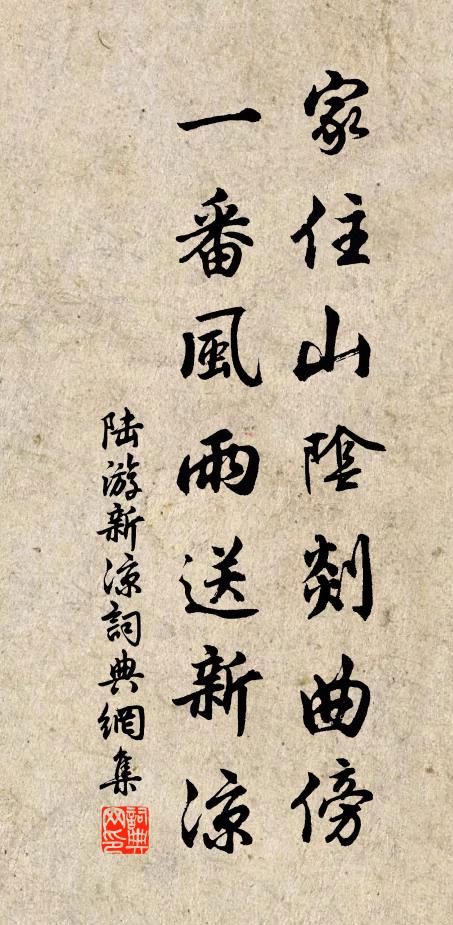 家住山陰剡曲傍
一番風雨送新涼
陆游新凉詞典網集
詞典
网印